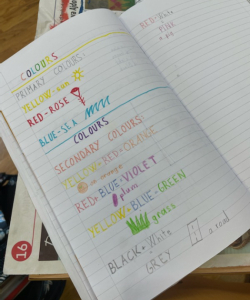 COLOURS
PRIMARY COLOURS:
YELLOW-sun
RED-ROSE
BLUE-SEA
COLOURS
SECONDARY COLOURS:
YELLOW-RED-ORANGE
an orange
RED+BLUE-VIOLET
plum
YELLOW+BLUE-GREEN
grass
BLACK+White
GREY
a road
16